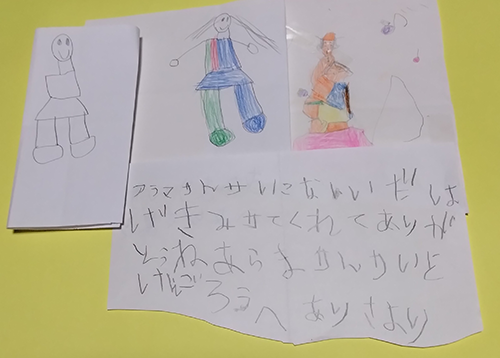 アラマせんせいこないいだ は
げきみせてくれてありが
とうねあらまかんかいと
けんごろうへ ありさより